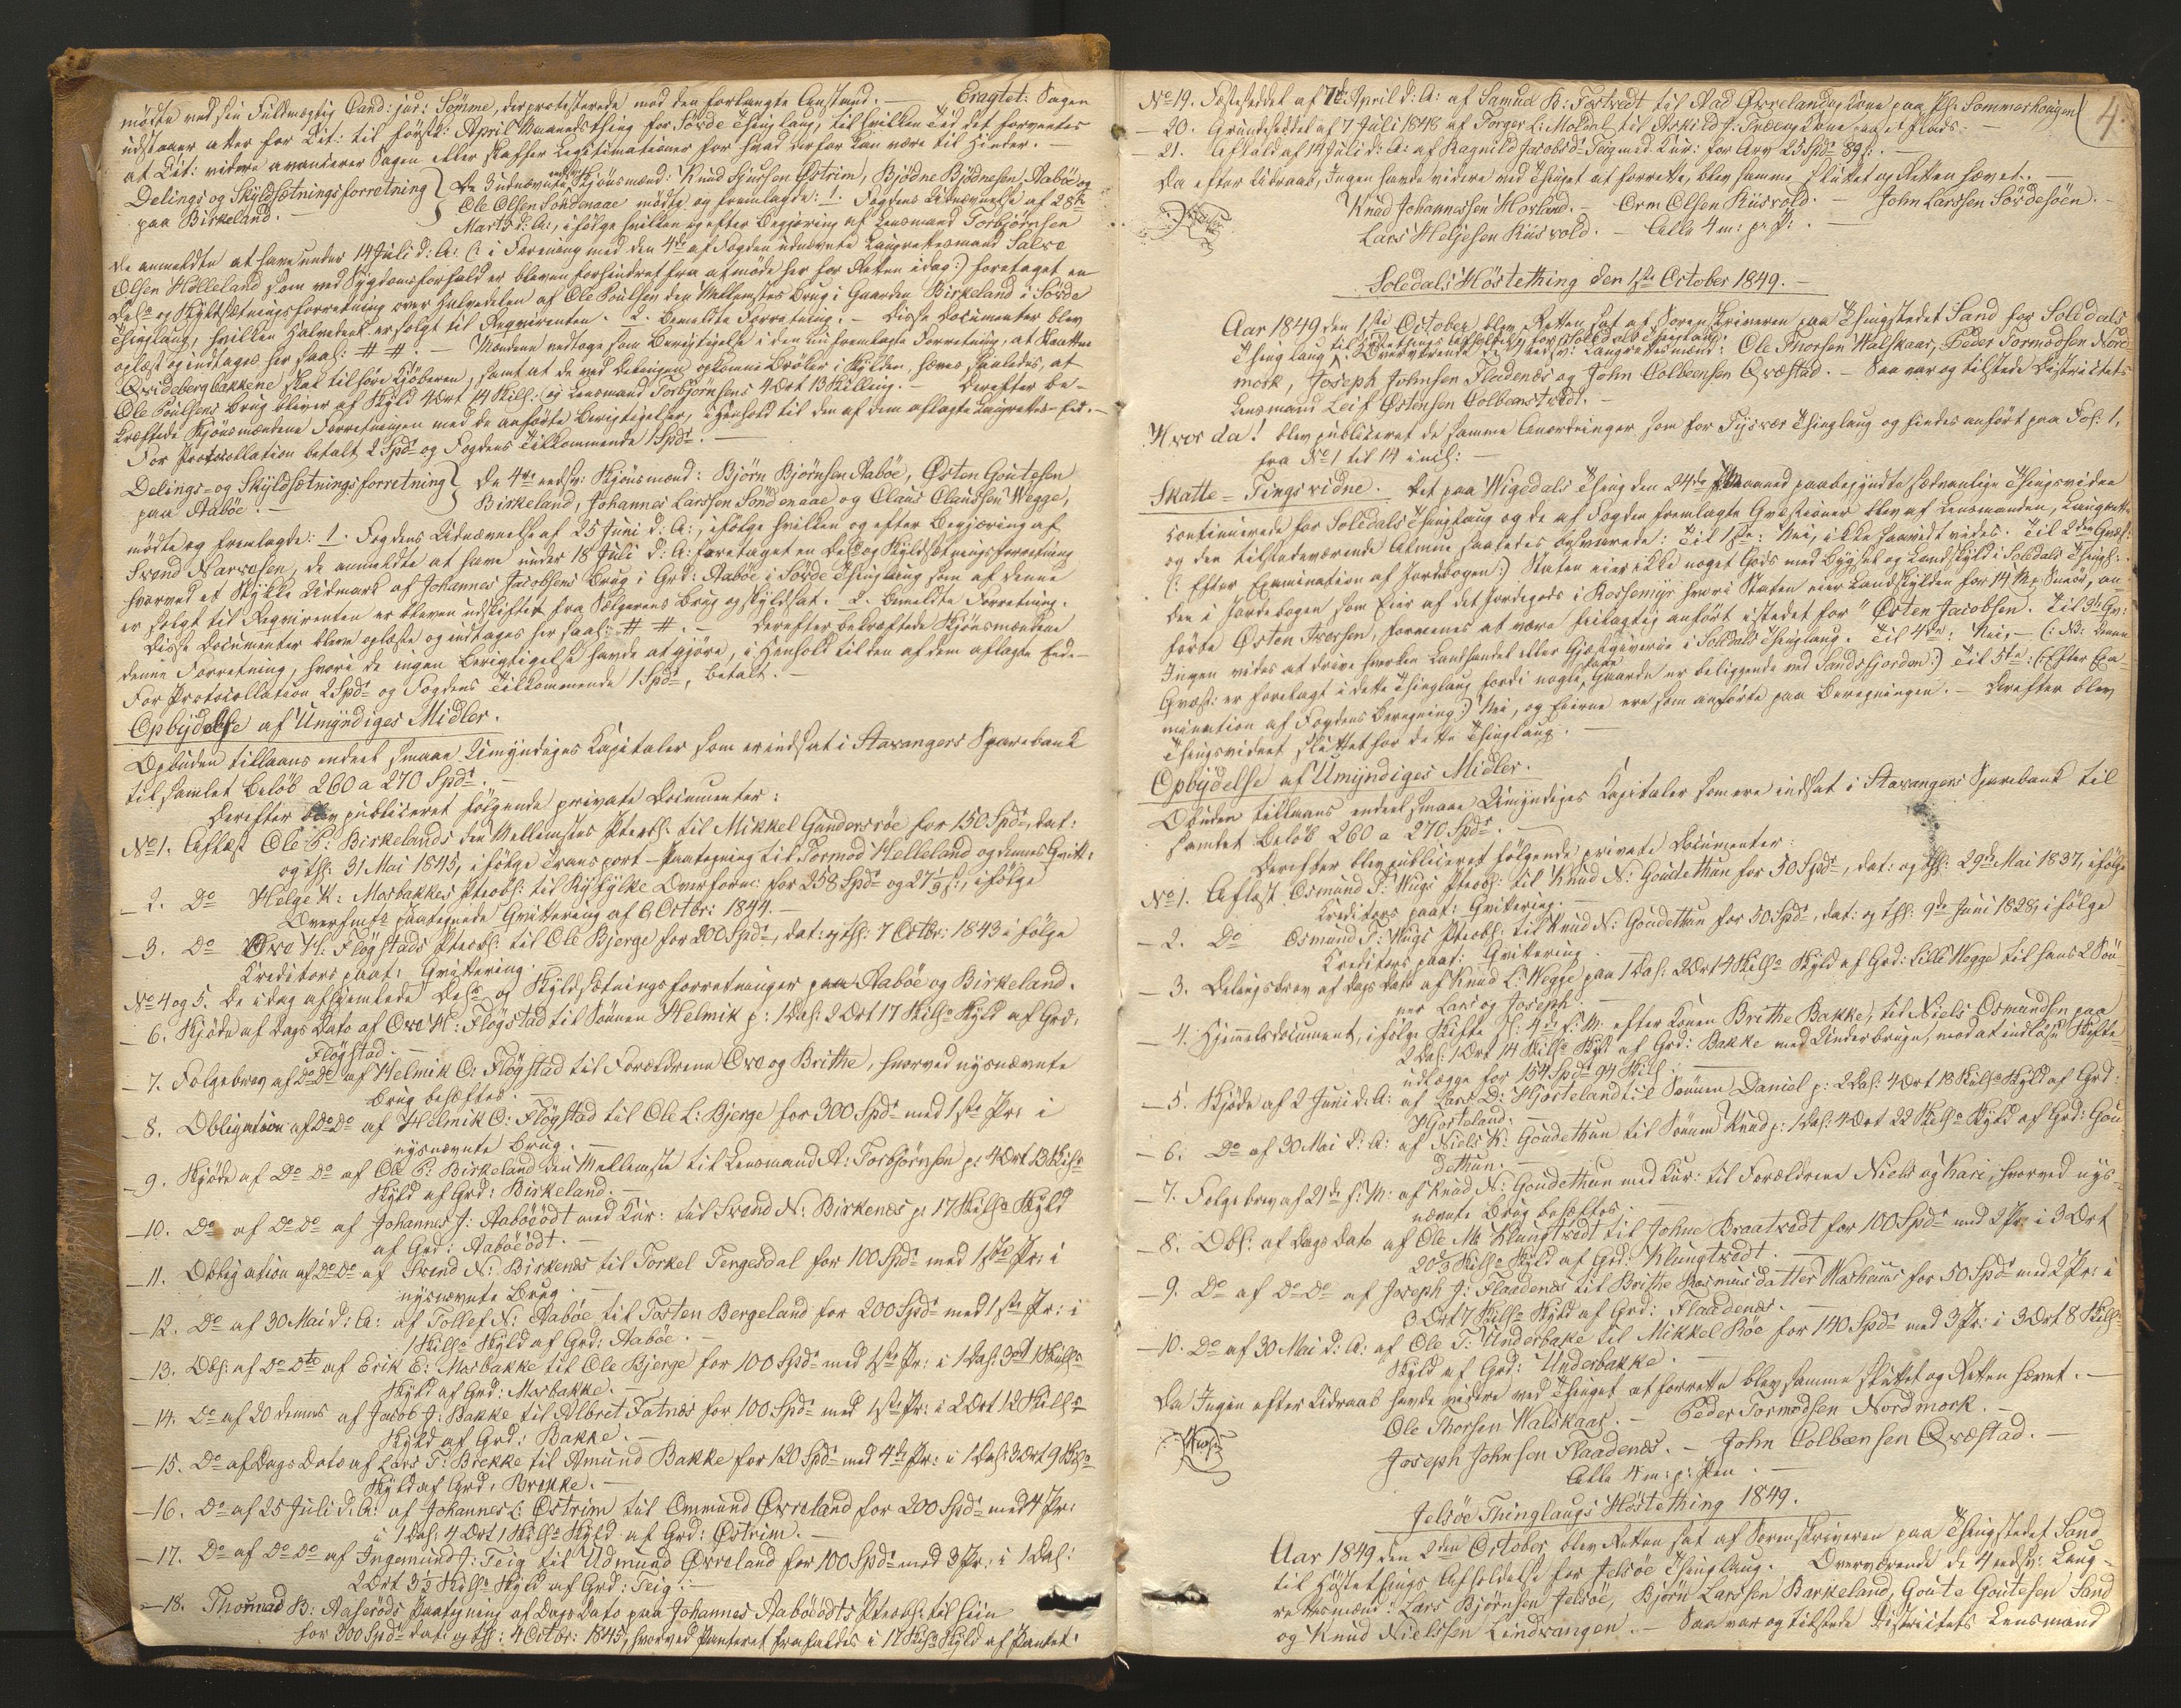 mødte ved sin Fuldmægtig Cand: jur: Sømme, der protesterede mod den forlangte Anstand. — Eragtet: Sagen
udstaaer atter for Cit: til førstk: April Maaneds Thing for Søvde Thinglaug, til hvilken Tid det forventes
at Cit: videre avanterer Sagen eller skaffer Legitimationer for hvad derfor kan være til Hinder. —
Delings og Skyldsætningsforretning
paa Birkeland. —
De 3 udnævnte Skjønsmænd: Knud Sjursen Østrim, Bjødne Bjødnesen Aabøe og
Ole Olsen Søndenaae mødte og fremlagde: 1. Fogdens Udnævnelse af 28de
Marts d: A:, ifølge hvilken og efter Begjæring af Lensmand Torbjørnsen
de anmeldte at have under 14 Juli d: A: (: i Forening med den 4de af Fogden udnævnte Laugrettesmand Salve
Olsen Helleland som ved Sygdomsforfald er bleven forhindret fra at møde her for Retten idag:) foretaget en
Dels og Skyldsætningsforretning over Halvedelen af Ole Poulsen den Mellemstes Brug i Gaarden Birkeland i Søvde
Thinglaug, hvilken Halvedeel er solgt til Reqvirenten. 2. Bemeldte Forretning. — Disse Documenter blev
oplæst og indtages her saal: # #. — Mændene vedtoge som Berigtigelse i den nu fremlagte Forretning, at
Qvidebergbakkene skal tilhøre Kjøberen, samt at de ved Delingen opkomne Brøker i Skylden, hæves saaledes, at
Ole Poulsens Brug bliver af Skyld 4 Ort 14 Skill: og Lensmand Torbjørnsens 4 Ort 13 Skilling. — Derefter be-
kræftede Skjønsmændene Forretningen med de anførte Berigtigelser, i Henhold til den af dem aflagte Laugrettes-Eed. —
For Protocollation betalt 2 Spdr og Fogdens Tilkommende 1 Spdr. —
Delings- og Skyldsætningsforretning
paa Aabøe. —
De 4re eedsv: Skjønsmænd: Bjørn Bjørnsen Aabøe, Østen Goutesen
Birkeland, Johannes Larssen Søndenaae og Claus Claussen Wegge,
mødte og fremlagde: 1. Fogdens Udnævnelse af 25 Juni d: A:, ifølge hvilken og efter Begjæring af
Svend Narvesen, de anmeldte at have under 18 Juli d: A: foretaget en Dels og Skyldsætningsforretning
hvorved et Stykke Udmark af Johannes Jacobsens Brug i Grd: Aabøe i Søvde Thinglaug som af denne
er solgt til Reqvirenten er bleven udskiftet fra Sælgerens Brug og skyldsat. 2. Bemeldte Forretning.
Disse Documenter bleve oplæste og indtages her saal: # #. — Derefter bekræftede Skjønsmændene
denne Forretning, hvori de ingen Berigtigelse havde at gjøre, i Henhold til den af dem aflagte Eed. —
For Protocollation 2 Spdr og Fogdens Tilkommende 1 Spdr, betalt. —
Opbydelse af Umyndiges Midler.
Opbuden tillaans endeel smaae Umyndiges Capitaler som er indsat i Stavangers Sparebank
til samlet Beløb 260 a 270 Spdr. —
Derefter blev publiceret følgende private Documenter:
No 1. Aflæst Ole P: Birkelands den Mellemstes Pteobl: til Mikkel Gundersrøe for 150 Spdr, dat:
og thl: 31 Mai 1845, ifølge Transport-Paategning til Tormod Helleland og dennes Qvitt:
— 2. Do Helge K: Mosbakkes Pteobl: til Ryfylke Overform: for 258 Spdr og 27 1/9 s:, ifølge
Overfmts paategnede Qvittering af 6 Octbr: 1844. —
— 3. Do Ove H: Fløgstads Pteobl: til Ole Bjerge for 200 Spdr, dat: og thl: 7 Octbr: 1843 ifølge
Creditors paat: Qvittering. —
No 4 og 5. De idag afhjemlede Dels og Skyldsætningsforretninger paa Aabøe og Birkeland.
— 6. Skjøde af Dags Dato af Ove H: Fløgstad til Sønnen Helmik p: 1 Dal: 2 Ort 17 Skills Skyld af Grd:
Fløgstad. —
— 7. Folgebrev af Do Do af Helmik O: Fløgstad til Forældrene Ove og Brithe, hvorved nysnævnte
Brug behæftes. —
— 8. Obligation af Do Do af Helmik O: Fløgstad til Ole L: Bjerge for 300 Spdr med 1ste Pr: i
nysnævnte Brug. —
— 9. Skjøde af Do Do af Ole P: Birkeland den Mellemste til Lensmand A: Torbjørnsen p: 4 Ort 13 Skills
Skyld af Grd: Birkeland. —
— 10. Do af Do Do af Johannes J: Aabøeødt med Cur: til Svend N: Birkenes p: 17 Skills Skyld
af Grd: Aabøeødt. —
— 11. Obligation af Do Do af Svend N: Birkenes til Torkel Tengesdal for 100 Spdr med 1ste Pr: i
nysnævnte Brug. —
— 12. Do af 30 Mai d: A: af Tollef N: Aabøe til Tosten Bergeland for 200 Spdr med 1ste Pr: i
1 Skills Skyld af Grd: Aabøe. —
— 13. Obl: af Do Dto af Erik E: Mosbakke til Ole Bjerge for 100 Spdr med 1ste Pr: i 1 Dal: 3 Ort 1 Skills
Skyld af Grd: Mosbakke. —
— 14. Do af 20 dennes af Jacob J: Bakke til Albret Fatnes for 100 Spdr med 1ste Pr: i 2 Ort 12 Skills
Skyld af Grd: Bakke. —
— 15. Do af Dags Dato af Lars T: Brekke til Amund Bakke for 120 Spdr med 4de Pr: i 1 Dal: 3 Ort 9 Skls
Skyld af Grd: Brekke. —
— 16. Do af 25 Juli d: A: af Johannes C: Østrim til Ommund Øvreland for 200 Spdr med 4 Pr:
i 1 Dal: 4 Ort 1 Skills Skyld af Grd: Østrim. —
— 17. Do af Do Do af Ingemund J: Teig til Udmund Øvreland for 100 Spdr med 3 Pr: i 1 Dal:
2 Ort 3 1/2 Skills Skyld af Grd: Teig. —
— 18. Thomas B: Aaserøds Paategning af Dags Dato paa Johannes Aabøeødts Pteobl: til hiin
for 300 Spdr dat: og thl: 4 Octbr: 1845, hvorved Panteret frafaldes i 17 Skills Skyld af Pantet.
4.
No 19. Festeseddel af 7de April d: A: af Samuel K: Tostvedt til Aad Øvrelands Cone paa Pl: Sommerhougen
— 20. Grundeseddel af 7 Juli 1848 af Torger L: Moldal til Askild J: Cone paa et Plads. —
— 21. Afkald af 14 Juli d: A: af Ragnild Jacobsd: Teig med Cur: for Arv 25 Spdr 89 s: —
Da efter Udraab, Ingen havde videre ved Thinget at forrette, blev samme sluttet og Retten hævet. —
Knud Johannessen Horland. — Orm Olsen Riisvold. — John Larssen Søvdesøen. —
Lars Heljesen Riisvold. — Alle 4 m: p: P: —
Soledals Høstething den 1ste October 1849. —
Aar 1849 den 1ste October blev Retten sat af Sorenskriveren paa Thingstedet Sand for Soledals
Thinglaug til Høstethings Afholdelse for Soledals Thinglaug. Overværende de 4 eedsv: Laugrettesmænd: Ole Thorsen Walskaar, Peder Tormodsen Nord
mork, Joseph Johnsen Fladenes og John Colbeensen Qvæstad. — Saa var og tilstede Districtets
Lensmand Leif Østensen Colbenstvedt. —
Hvor da! blev publiceret de samme Anordninger som for Tysvær Thinglaug og findes anført paa Fol: 1,
fra No 1 til 14 incl: —
Skatte-Tingsvidne. Det paa Wigedals Thing den 24de f: Maaned paabegyndte sædvanlige Thingsvidne
continuerede for Soledals Thinglaug og de af Fogden fremlagte Qvæstioner blev af Lensmanden, Laugrette
og den tilstedeværende Almue saaledes besvarede: Til 1ste: Nei, ikke saavidt vides. Til 2den Qvæst:
(: Efter Examination af Jordebogen:) Staten eier ikke noget Gods med Bygsel og Landskyld i Soledals Thingl: —
Den i Jordebogen som Eier af det Jordegods i Rossemyr hvori Staten eier Landskylden for 14 Mk Smør, an-
førte Østen Iversen, formenes at være feilagtig anført istedet for "Østen Jacobsen. Til 3de Qv:
Ingen vides at drive hverken Landhandel eller Gjæstgiverie i Soledals Thinglaug. Til 4de: Nei, — (: NB: Denne
Qvæst: er forelagt i dette Thinglaug fordi nogle faae Gaarde er beliggende ved Sandsfjorden:) Til 5te: (: Efter Exa-
mination af Fogdens Beregning:) Nei, og Eierne ere som anførte paa Beregningen. — Derefter blev
Thingsvidnet sluttet for dette Thinglaug. —
Opbydelse af Umyndiges Midler.
Opbuden tillaans endeel smaae Umyndiges Capitaler som ere indsat i Stavangers Sparebank til
samlet Beløb 260 a 270 Spdr. —
Derefter blev publiceret følgende private Documenter:
No 1. Aflæst Osmund T: Wugs Pteobl: til Knud N: Goudethun for 50 Spdr, dat: og thl: 29de Mai 1837, ifølge
Creditors paat: Qvittering. —
— 2. Do Osmund T: Wugs Pteobl: til Knud N: Goudethun for 50 Spdr, dat: og thl: 9de Juni 1828, ifølge
Creditors paat: Qvittering. —
— 3. Delingsbrev af Dags Dato af Knud L: Wegge paa 1 Dal: 2 Ort 4 Skills Skyld af Grd: Lille Wegge til hans 2 Søn-
ner Lars og Joseph. —
— 4. Hjemmelsdocument, ifølge Skifte sl: 4de f: M: efter Konen Brithe Bakke, til Niels Osmundsen paa
2 Dal: 1 Ort 14 Skills Skyld af Grd: Bakke med Underbruge, mod at indløse Skifte-
udlægge for 154 Spdr 94 Skill: —
— 5. Skjøde af 2 Juni d: A: af Lars D: Hjorteland til Sønnen Daniel p: 2 Dal: 4 Ort 18 Skills Skyld af Grd:
Hjorteland. —
— 6. Do af 30 Mai d: A: af Niels K: Goudethun til Sønnen Knud p: 1 Dal: 4 Ort 22 Skills Skyld af Grd: Gou
dethun. —
— 7. Folgebrev af 21de f: M: af Knud N: Goudethun med Cur: til Forældrene Niels og Kari, hvorved nys-
nævnte Brug behæftes. —
— 8. Obl: af Dags Dato af Ole M: Klungtvedt til Johne Braatvedt for 100 Spdr med 2 Pr: i 3 Ort
20 2/3 Skills Skyld af Grd: Klungtvedt. —
— 9. Do af Do Do af Joseph J: Flaadenes til Brithe Rasmusdatter Warhuus for 50 Spdr med 2 Pr: i
3 Ort 7 Skills Skyld af Grd: Flaadenes. —
— 10. Do af 30 Mai d: A: af Ole T: Underbake til Mikkel Røe for 140 Spdr med 3 Pr: i 3 Ort 8 Skills
Skyld af Grd: Underbakke. —
Da Ingen efter Udraab havde videre ved Thinget at forrette blev samme sluttet og Retten hævet. —
Ole Thorsen Walskaar. — Peder Tormodsen Nordmork. —
Joseph Johnsen Flaadenes. — John Colbeensen Qvæstad. —
Alle 4 m: p: Pen. —
Jelsøe Thinglaugs Høstething 1849.
Aar 1849 den 2den October blev Retten sat af Sorenskriveren paa Thingstedet Sand
til Høstethings Afholdelse for Jelsøe Thinglaug. Overværende de 4 eedsv: Laug-
rettesmænd: Lars Bjørnsen Jelsøe, Bjørn Larssen Barkeland, Goute Goutesen Sand
og Knud Nielssen Lindvangen. — Saa var og tilstede Districtets Lensmand